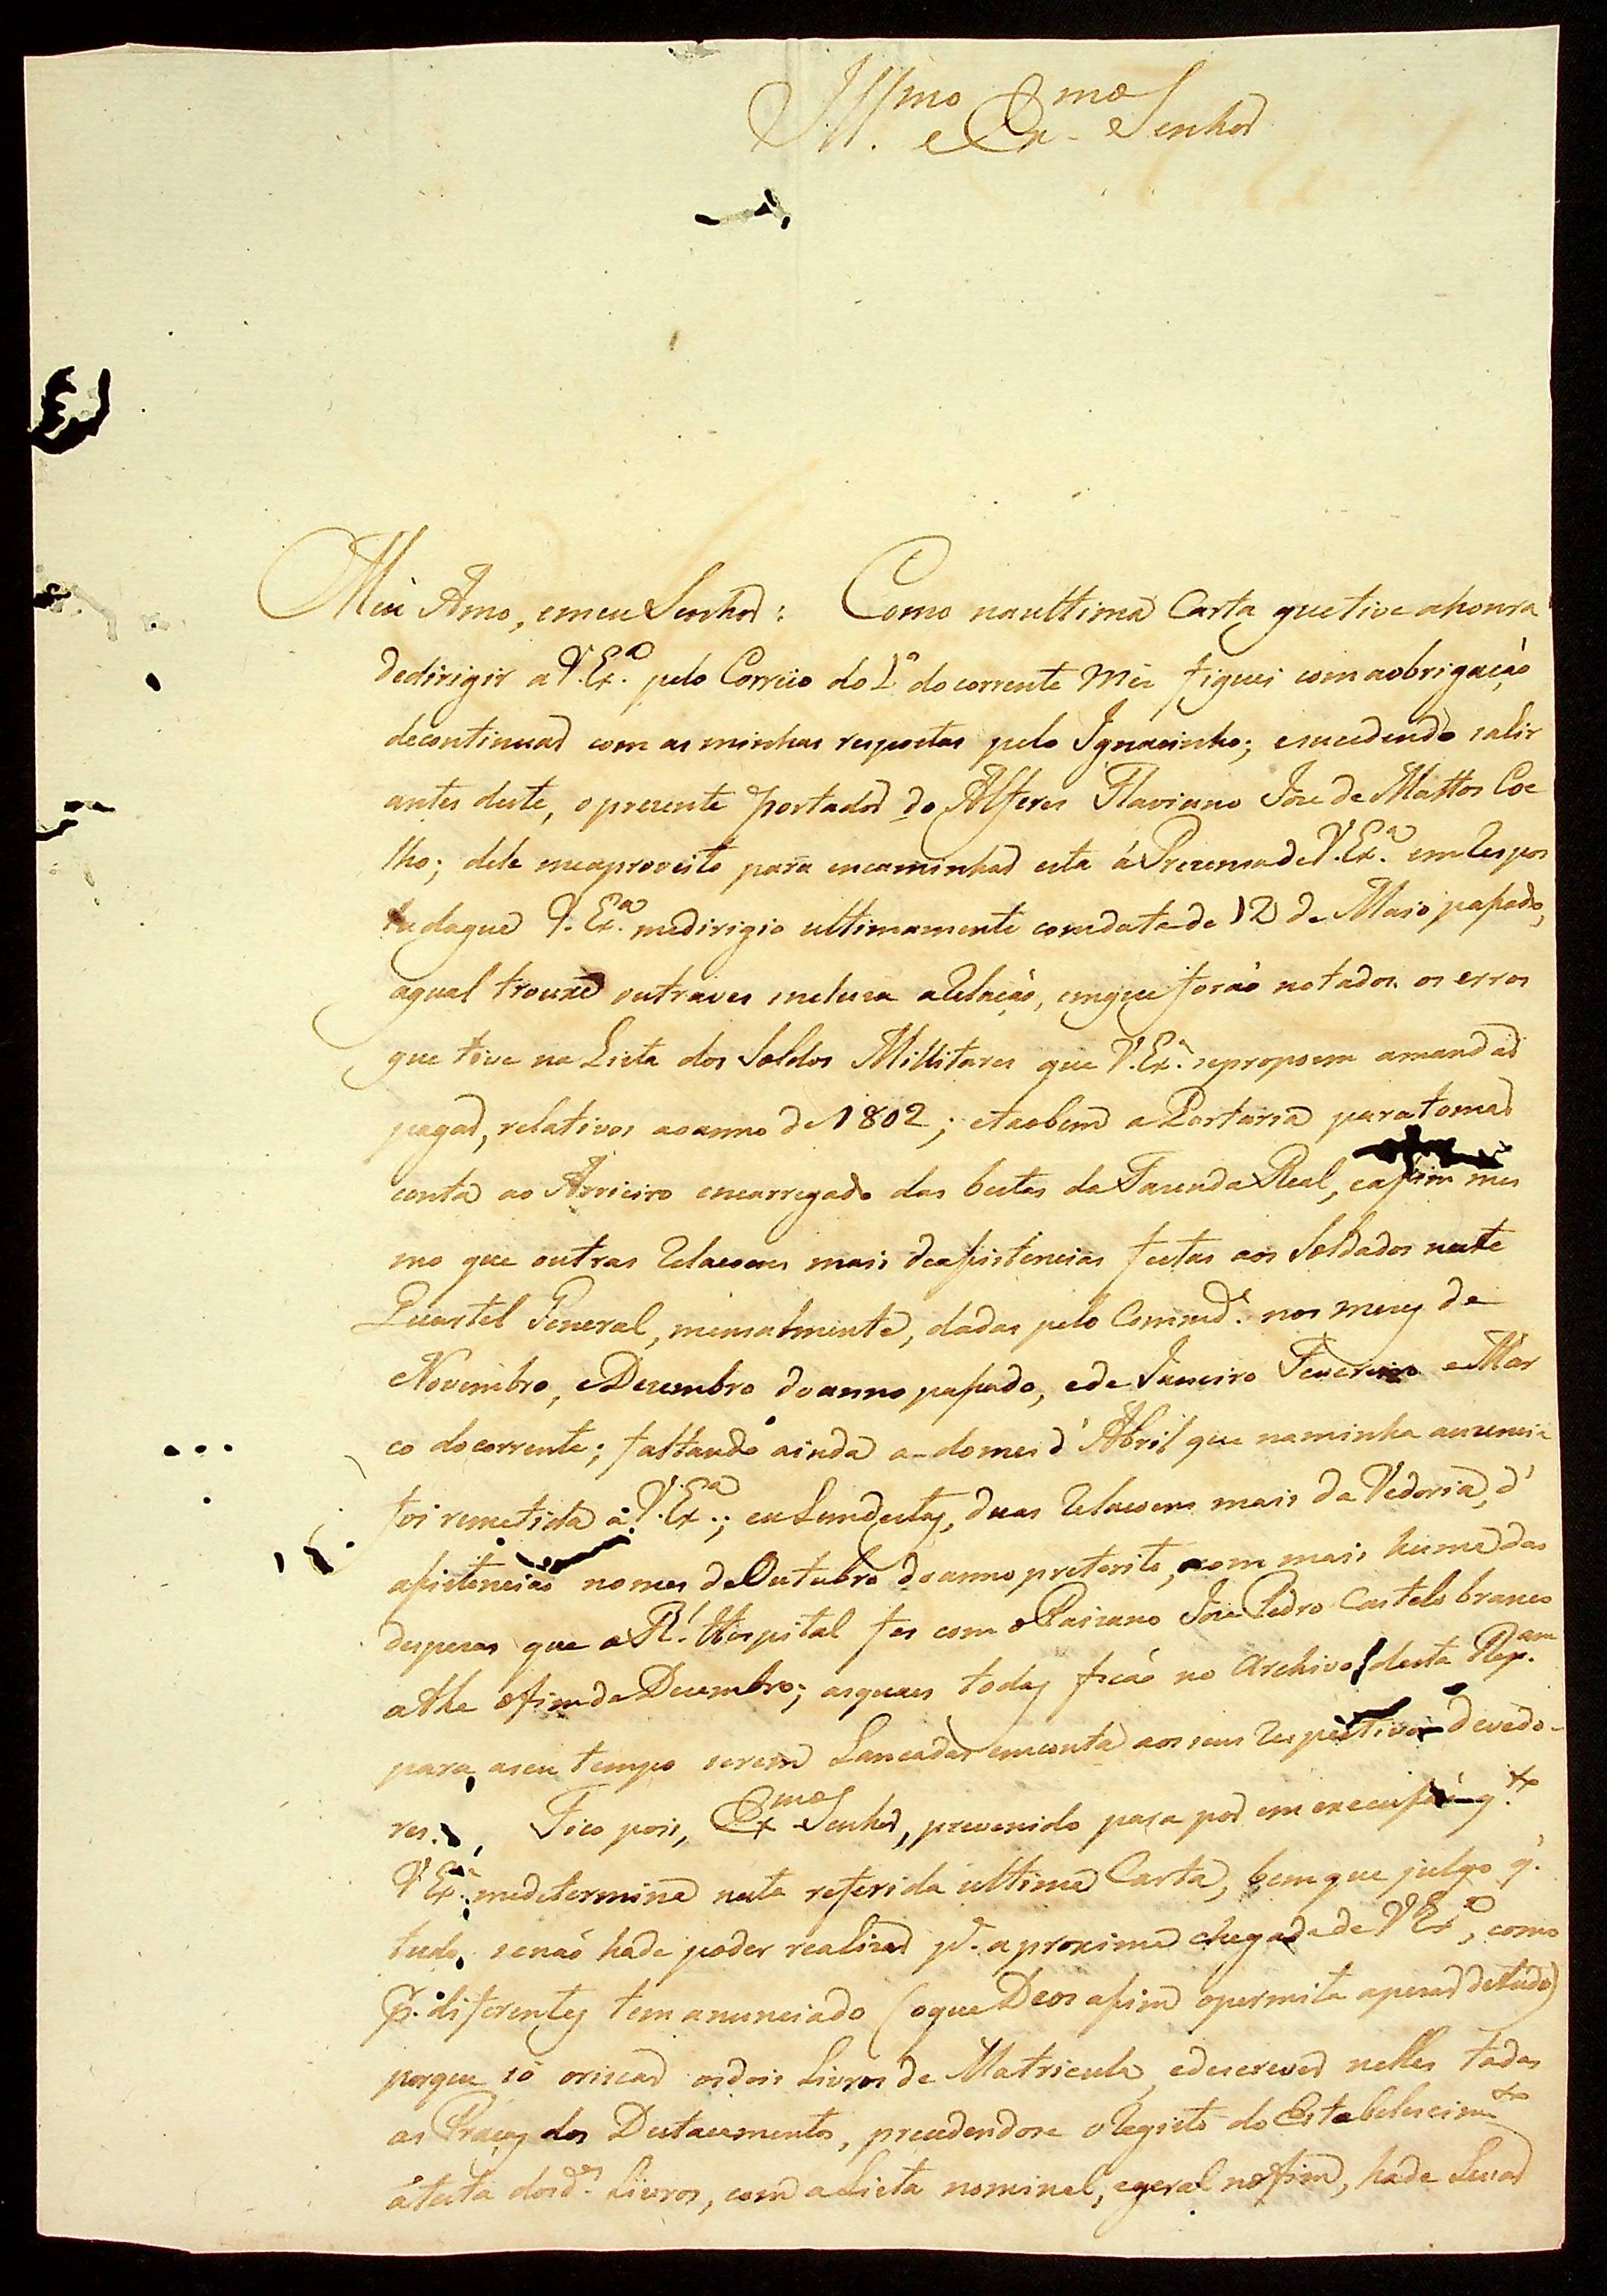 Illmo e Exmo Senhor
Meu Amo, e meu Senhor: Como na ultima Carta que tive a honra
de dirigir a V. Exa. pelo Correio do 1o do corrente Mez fiquei com a obrigação
de continuar com as minhas respostas pelo Ignacinho; e sucedendo sahir
antes deste, o prezente Portador do Alferes Flaviano Joze de Mattos Coe
lho; dele me aproveito para encaminhar esta á Prezensa de V. Exa. em Respos
ta da que V. Exa. me dirigio ultimamente com data de 12 de Maio passado,
a qual trouxe outra vez incluza a Relação, em que forão notados os erros
que tive na Lista dos Soldos Millitares que V. Exa. se propoem a mandar
pagar, relativos ao anno de 1802; e taobem a Portaria para tomar
conta ao Arrieiro encarregado das bestas da Fazenda Real, e assim mes
mo que outras Relacoens mais de assistencias feitas aos Soldados neste
Quartel General, mensalmente, dadas pelo Commde. nos mezes de
Novembro, e Dezembro do anno passado, e de Janeiro Fevereiro e Mar
co do corrente; faltando ainda a do mes d'Abril que na minha auzencia
foi remetida a V. Exa.; e alem destas, duas Relacoens mais da Vedoria, d'
assistencias no mes de Outubro do anno preterito, com mais huma das
despezas que o Rl. Hospital fes com o Paizano Joze Pedro Castelo branco
athe o fim de Dezembro; as quaes todas ficão no Archivo desta Repam.
para a seu tempo serem Lancadas em conta aos seus Respectivos devedo-
res. Fico pois, Exmo Senhor, prevenido para por em execussão q.to
V Exa. me determina nesta referida ultima Carta, bem que julgo q.
tudo senão hade poder realizar pa. a proxima chegada de V Exa, como
p. diferentes tem anunciado (o que Deos assim o permita apezar de tudo)
porque só o riscar os dois Livros de Matricula, e descrever nelles todas
as Praças dos Destacamentos, precedendose o Registo do Estabelecimto
á testa dos dos. Livros, com a Lista nominal, e geral no fim, hade Levar